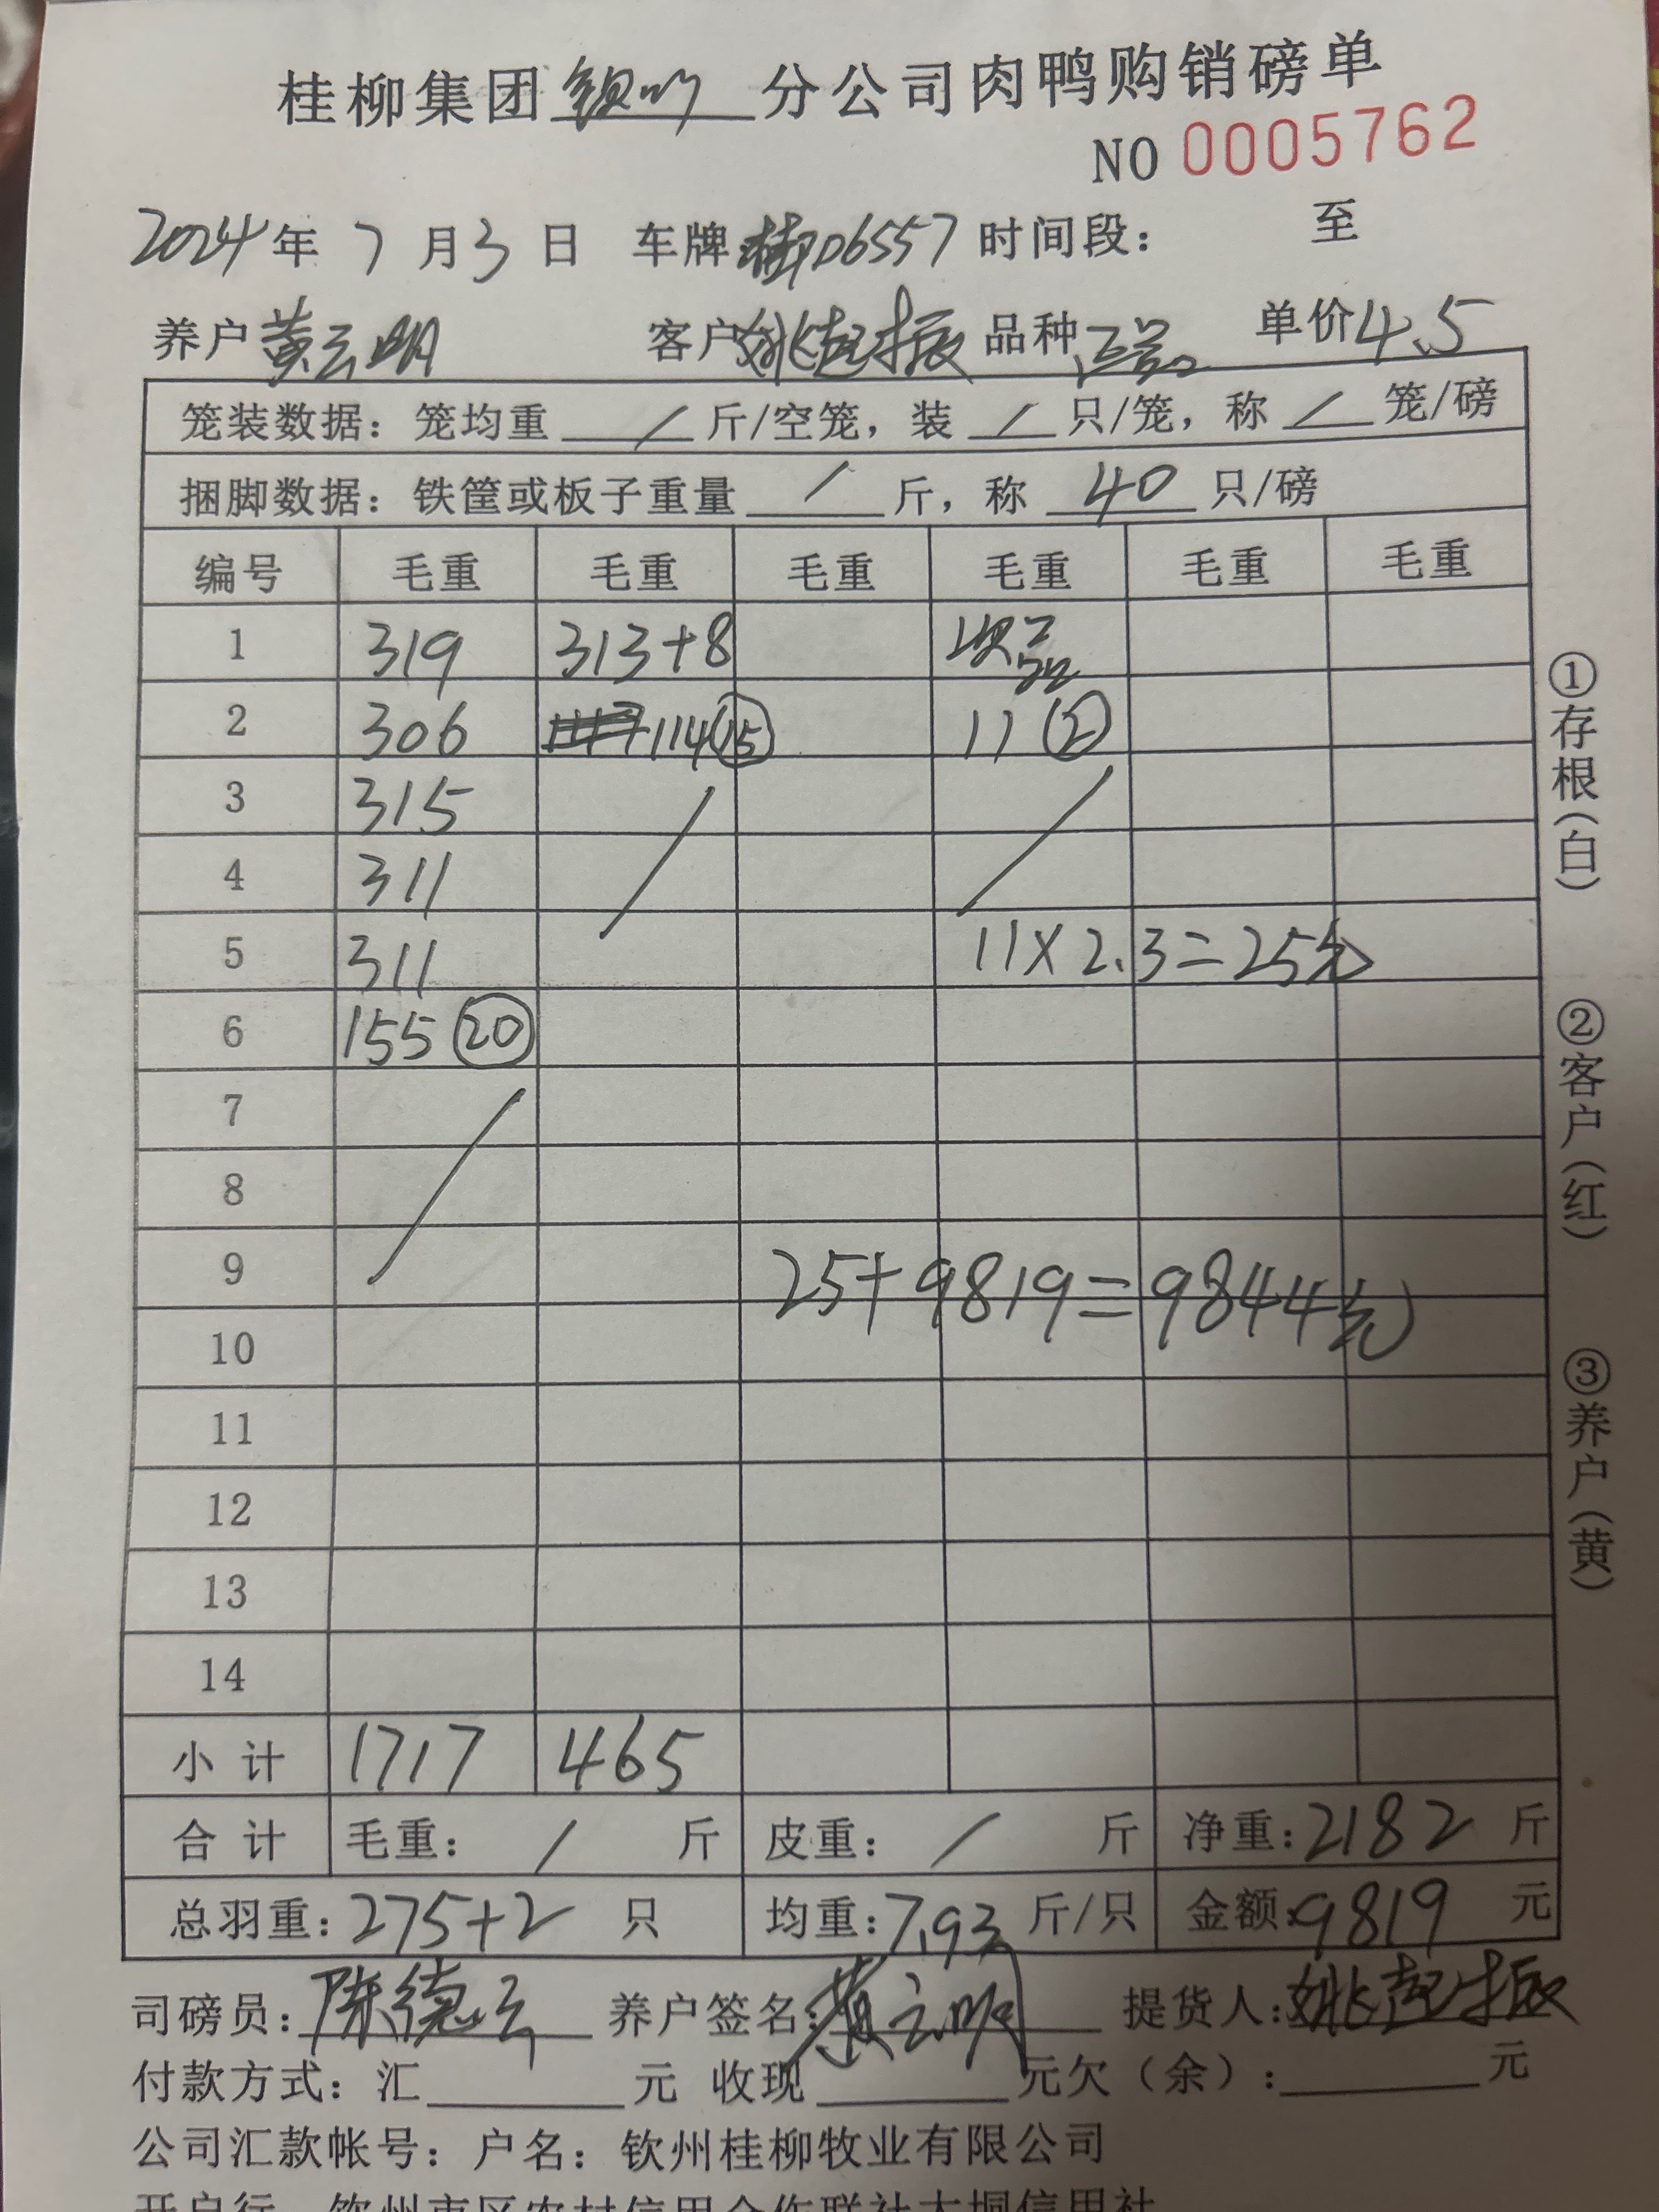 桂柳集团钦州分公司肉鸭购销磅单
NO 0005762
2024年7月3日 车牌桂D6557 时间段: 至
养户黄云明 客户姚起振 品种 单价4.5
笼装数据：笼均重 / 斤/空笼，装 / 只/笼，称 / 笼/磅
捆脚数据：铁筐或板子重量 / 斤，称 40 只/磅
编号 毛重 毛重 毛重 毛重 毛重 毛重
1 319 313+8 次品
2 306 114(15) 11(2)
3 315
4 311
5 311 11×2.3=25元
6 155(20)
7
8
9 25+9819=9844元
10
11
12
13
14
小计 1717 465
合计 毛重： / 斤 皮重： / 斤 净重：2182 斤
总羽重：275+2 只 均重：7.93 斤/只 金额：9819 元
司磅员：陈德云 养户签名：黄云明 提货人：姚起振
付款方式：汇 元 收现 元欠（余）： 元
公司汇款帐号：户名：钦州桂柳牧业有限公司
开户行 钦州市区农村信用合作联社大垌信用社
①存根（白）
②客户（红）
③养户（黄）